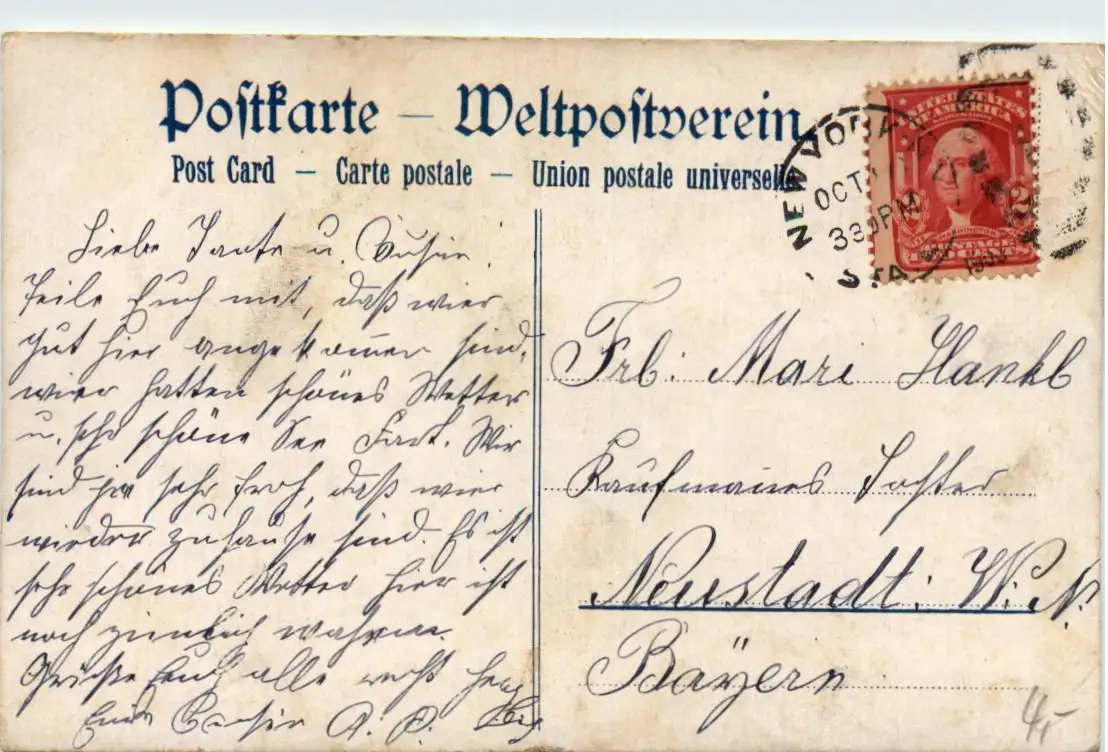 Postkarte – Weltpostverein
Post Card – Carte postale – Union postale universelle
NEW YORK
OCT
330PM
STA.
UNITED STATES
OF AMERICA
WASHINGTON
POSTAGE
2
Liebe Tante u. Cusin
Teile Euch mit, daß wier
gut hier angekomen sind,
wier hatten schönes Wetter
u. sehr schöne See Fart. Wir
sind sehr froh, daß wier
wieder zuhause sind. Es ist
sehr schönes Wetter hier ist
noch ziemlich wahrm.
Grüße Euch alle recht herz
Eure
Frl: Mari Hankl
Kaufmanes Tochter
Neustadt. W. N.
Bayern
4,-